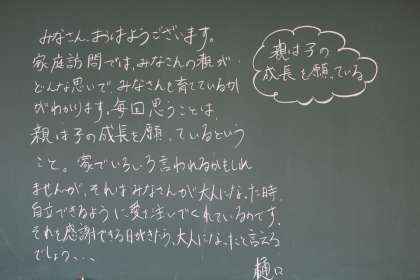 みなさん、おはようございます。
家庭訪問では、みなさんの親が、
どんな思いで、みなさんを育てているか
がわかります。毎回思うことは、
親は子の成長を願っているという
こと。家でいろいろ言われるかもしれ
ませんが、それはみなさんが大人になった時、
自立できるように愛を注いでくれているのです。
それを感謝できる日がきたら、大人になったと言える
でしょう、、、
樋口
親は子の
成長を願っている